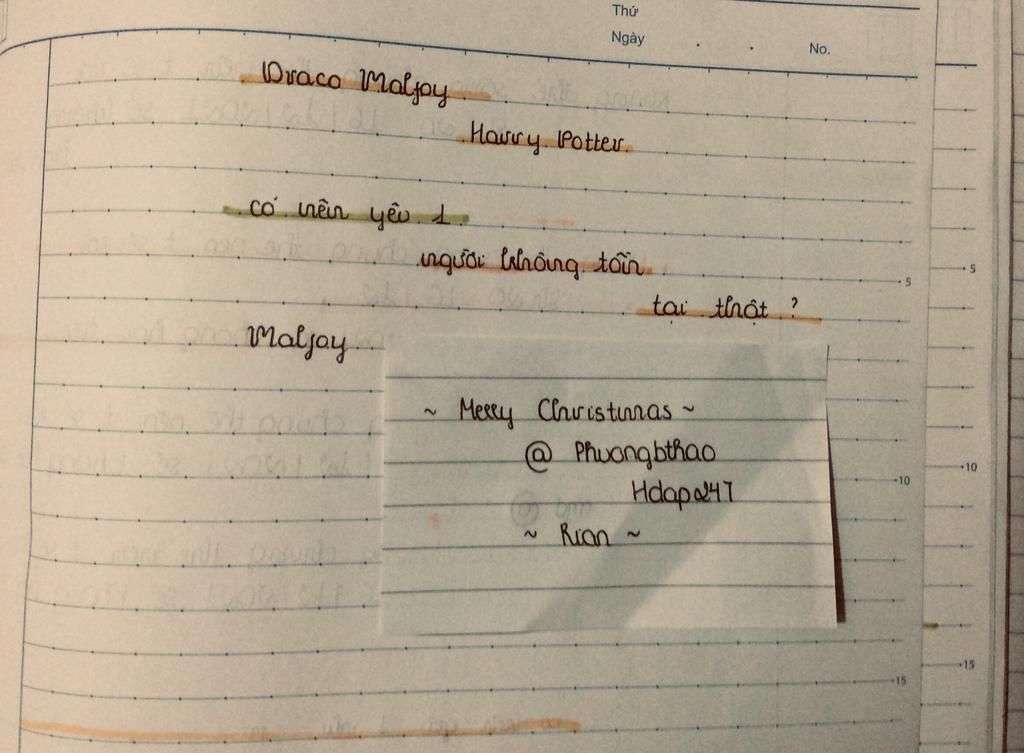 Thứ
Ngày . . No.
Draco Malfoy
Harry Potter.
có nên yêu 1
người không tồn
tại thật ?
Malfoy
~ Merry Christmas ~
@ Phuongbthao
Hdap247
~ Rian ~
5
5
10
10
15
15